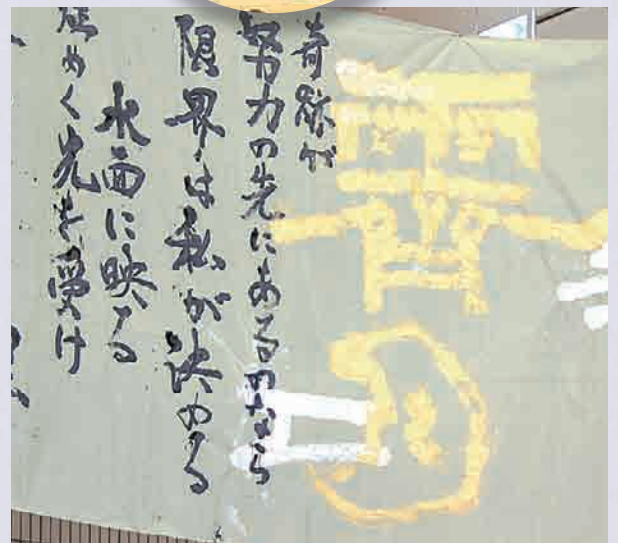 奇跡が
努力の先にあるのなら
限界は私が決める
水面に映る
煌めく光を受け